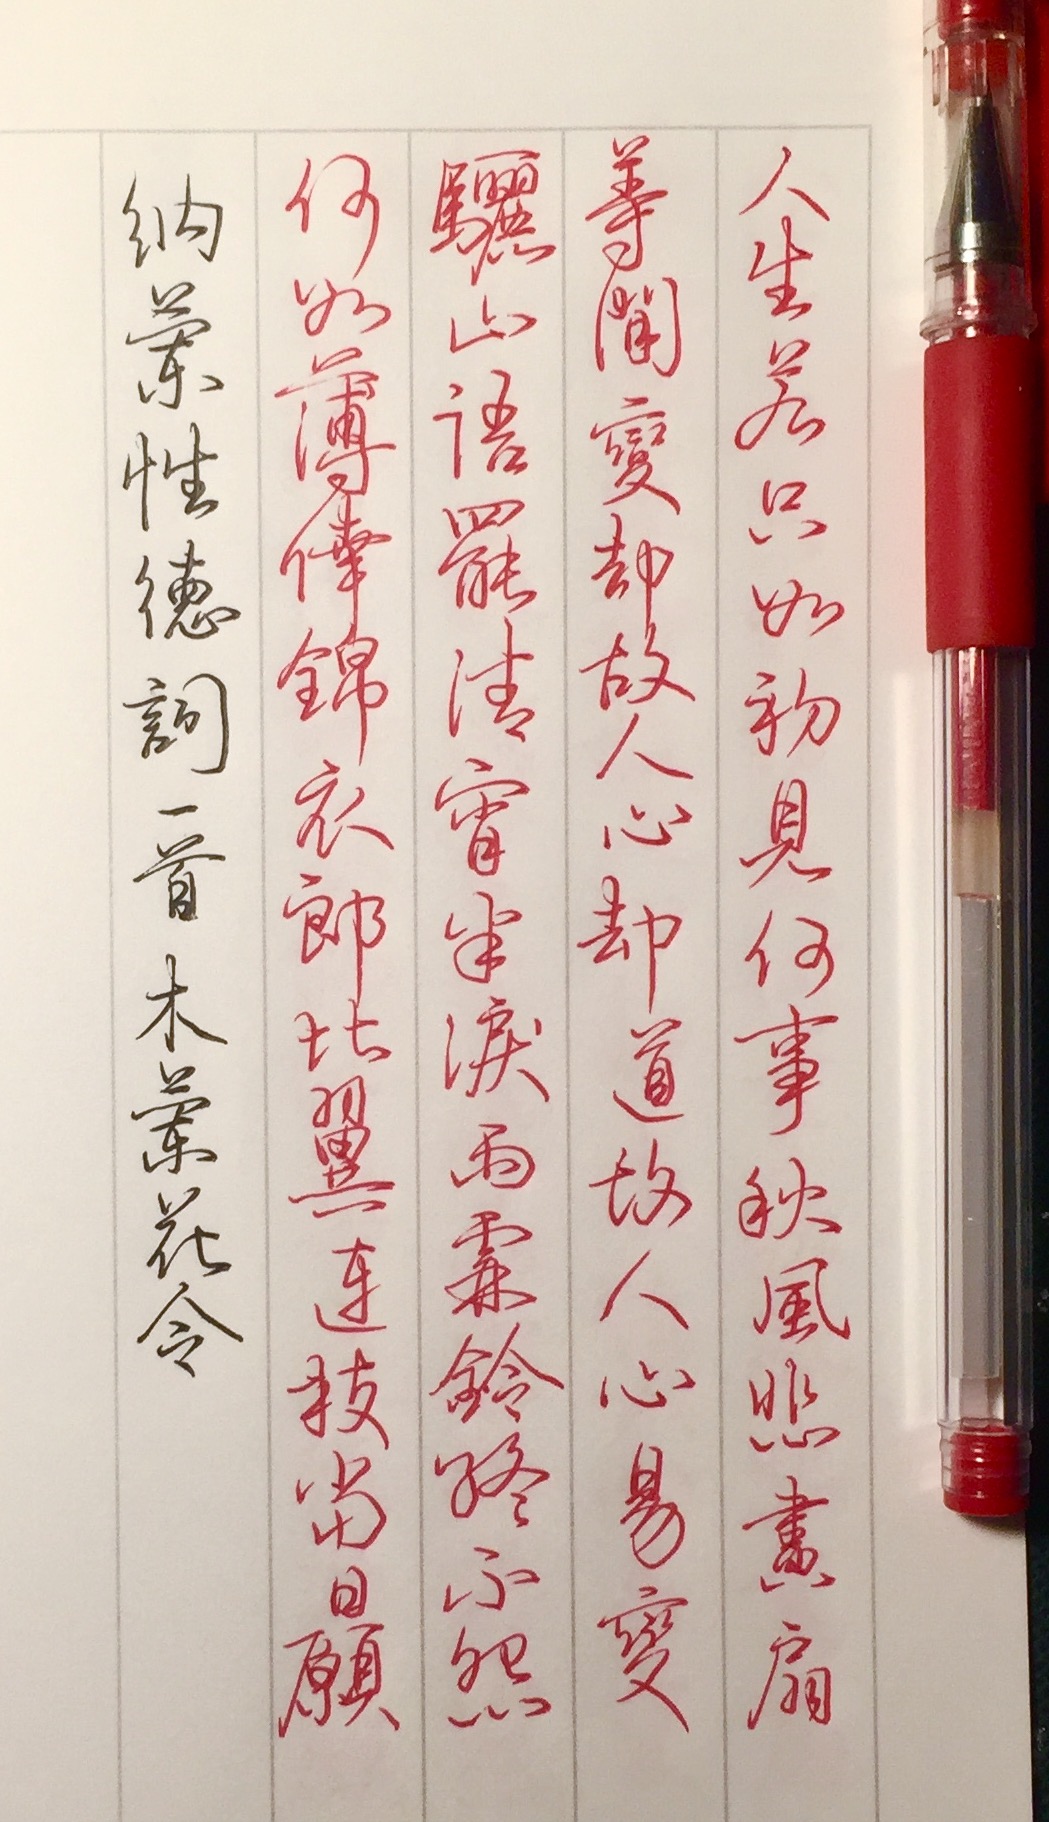 人生若只如初見何事秋風悲畫扇
等閒變却故人心却道故人心易變
驪山語罷清宵半淚雨霖鈴終不怨
何如薄倖錦衣郎比翼連枝當日願
納蘭性德詞一首木蘭花令